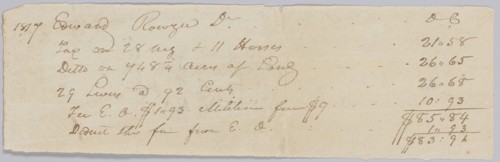 1817 Edward Rowzee Dr D C
Tax on 28 neg & 11 Horses 21=58
Ditto on acres of Land 26=65
29 Levies @ 92 Cents 26=68
Fee E. O. $1=93 Militia fine $9 10=93
$85=84
Deduct this fee from E. O. 1=93
$83=91